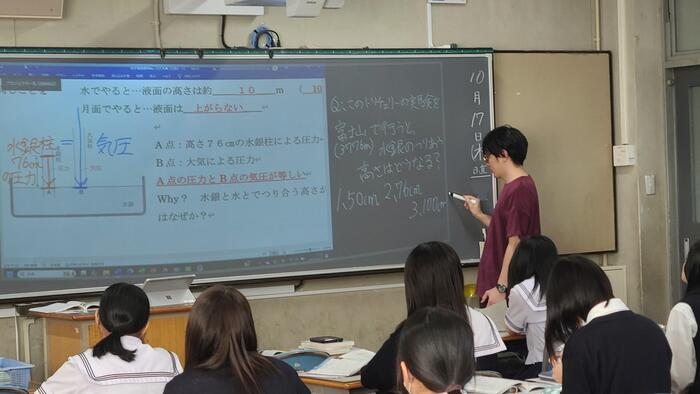 水でやると…液面の高さは約 １０ m ( 10
月面でやると…液面は 上がらない
A点：高さ７６cmの水銀柱による圧力
B点：大気による圧力
A点の圧力とB点の気圧が等しい
Why？ 水銀と水とでつり合う高さが
はなぜか？
水銀柱
76cm
の圧力
=
気圧
圧力
気圧
A
B
水銀
Q、このトリチェリーの実験を
富士山で行うと、
(3776m) 水銀のつりあう
高さはどうなる？
1、50cm 2、76cm
3、100cm
10月17日(木)